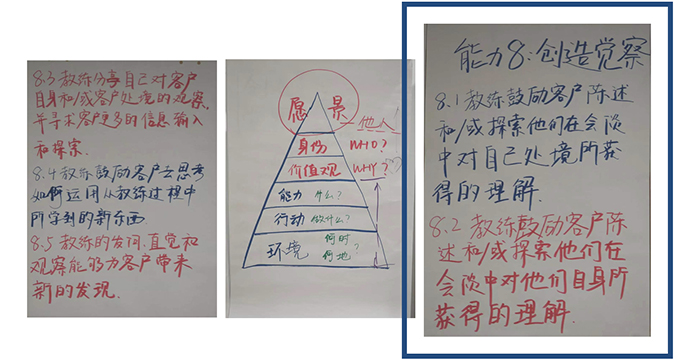 8.3 教练分享自己对客户
自身和/或客户处境的观察,
并寻求客户更多的信息输入
和探索.
8.4 教练鼓励客户去思考
如何运用从教练过程中
所学到的新东西
8.5 教练的发问,直觉和
观察能够为客户带来
新的发现.
愿景
他人
身份 WHO?
价值观 WHY?
能力 什么?
行动 做什么?
环境 何时
何地?
能力8:创造觉察
8.1 教练鼓励客户陈述
和/或探索他们在会谈
中对自己处境所获
得的理解.
8.2 教练鼓励客户陈
述和/或探索他们在
会谈中对他们自身所
获得的理解.